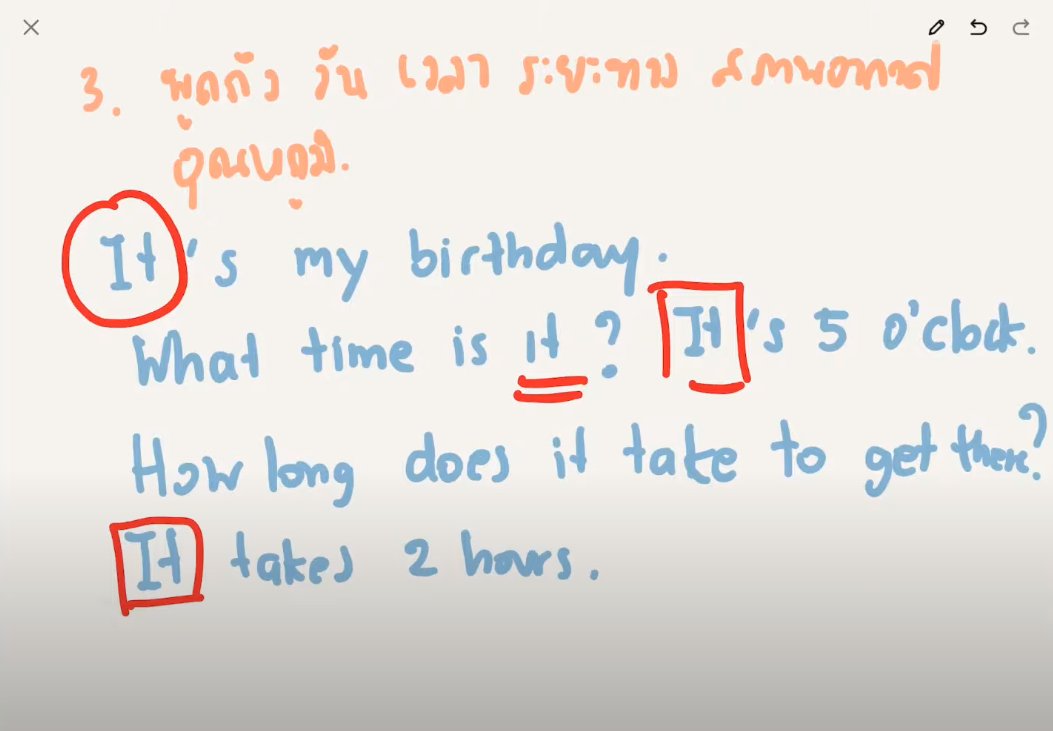 3. พูดถึง วัน เวลา ระยะทาง สภาพอากาศ
อุณหภูมิ.
It's my birthday.
What time is it? It's 5 o'clock.
How long does it take to get there?
It takes 2 hours.